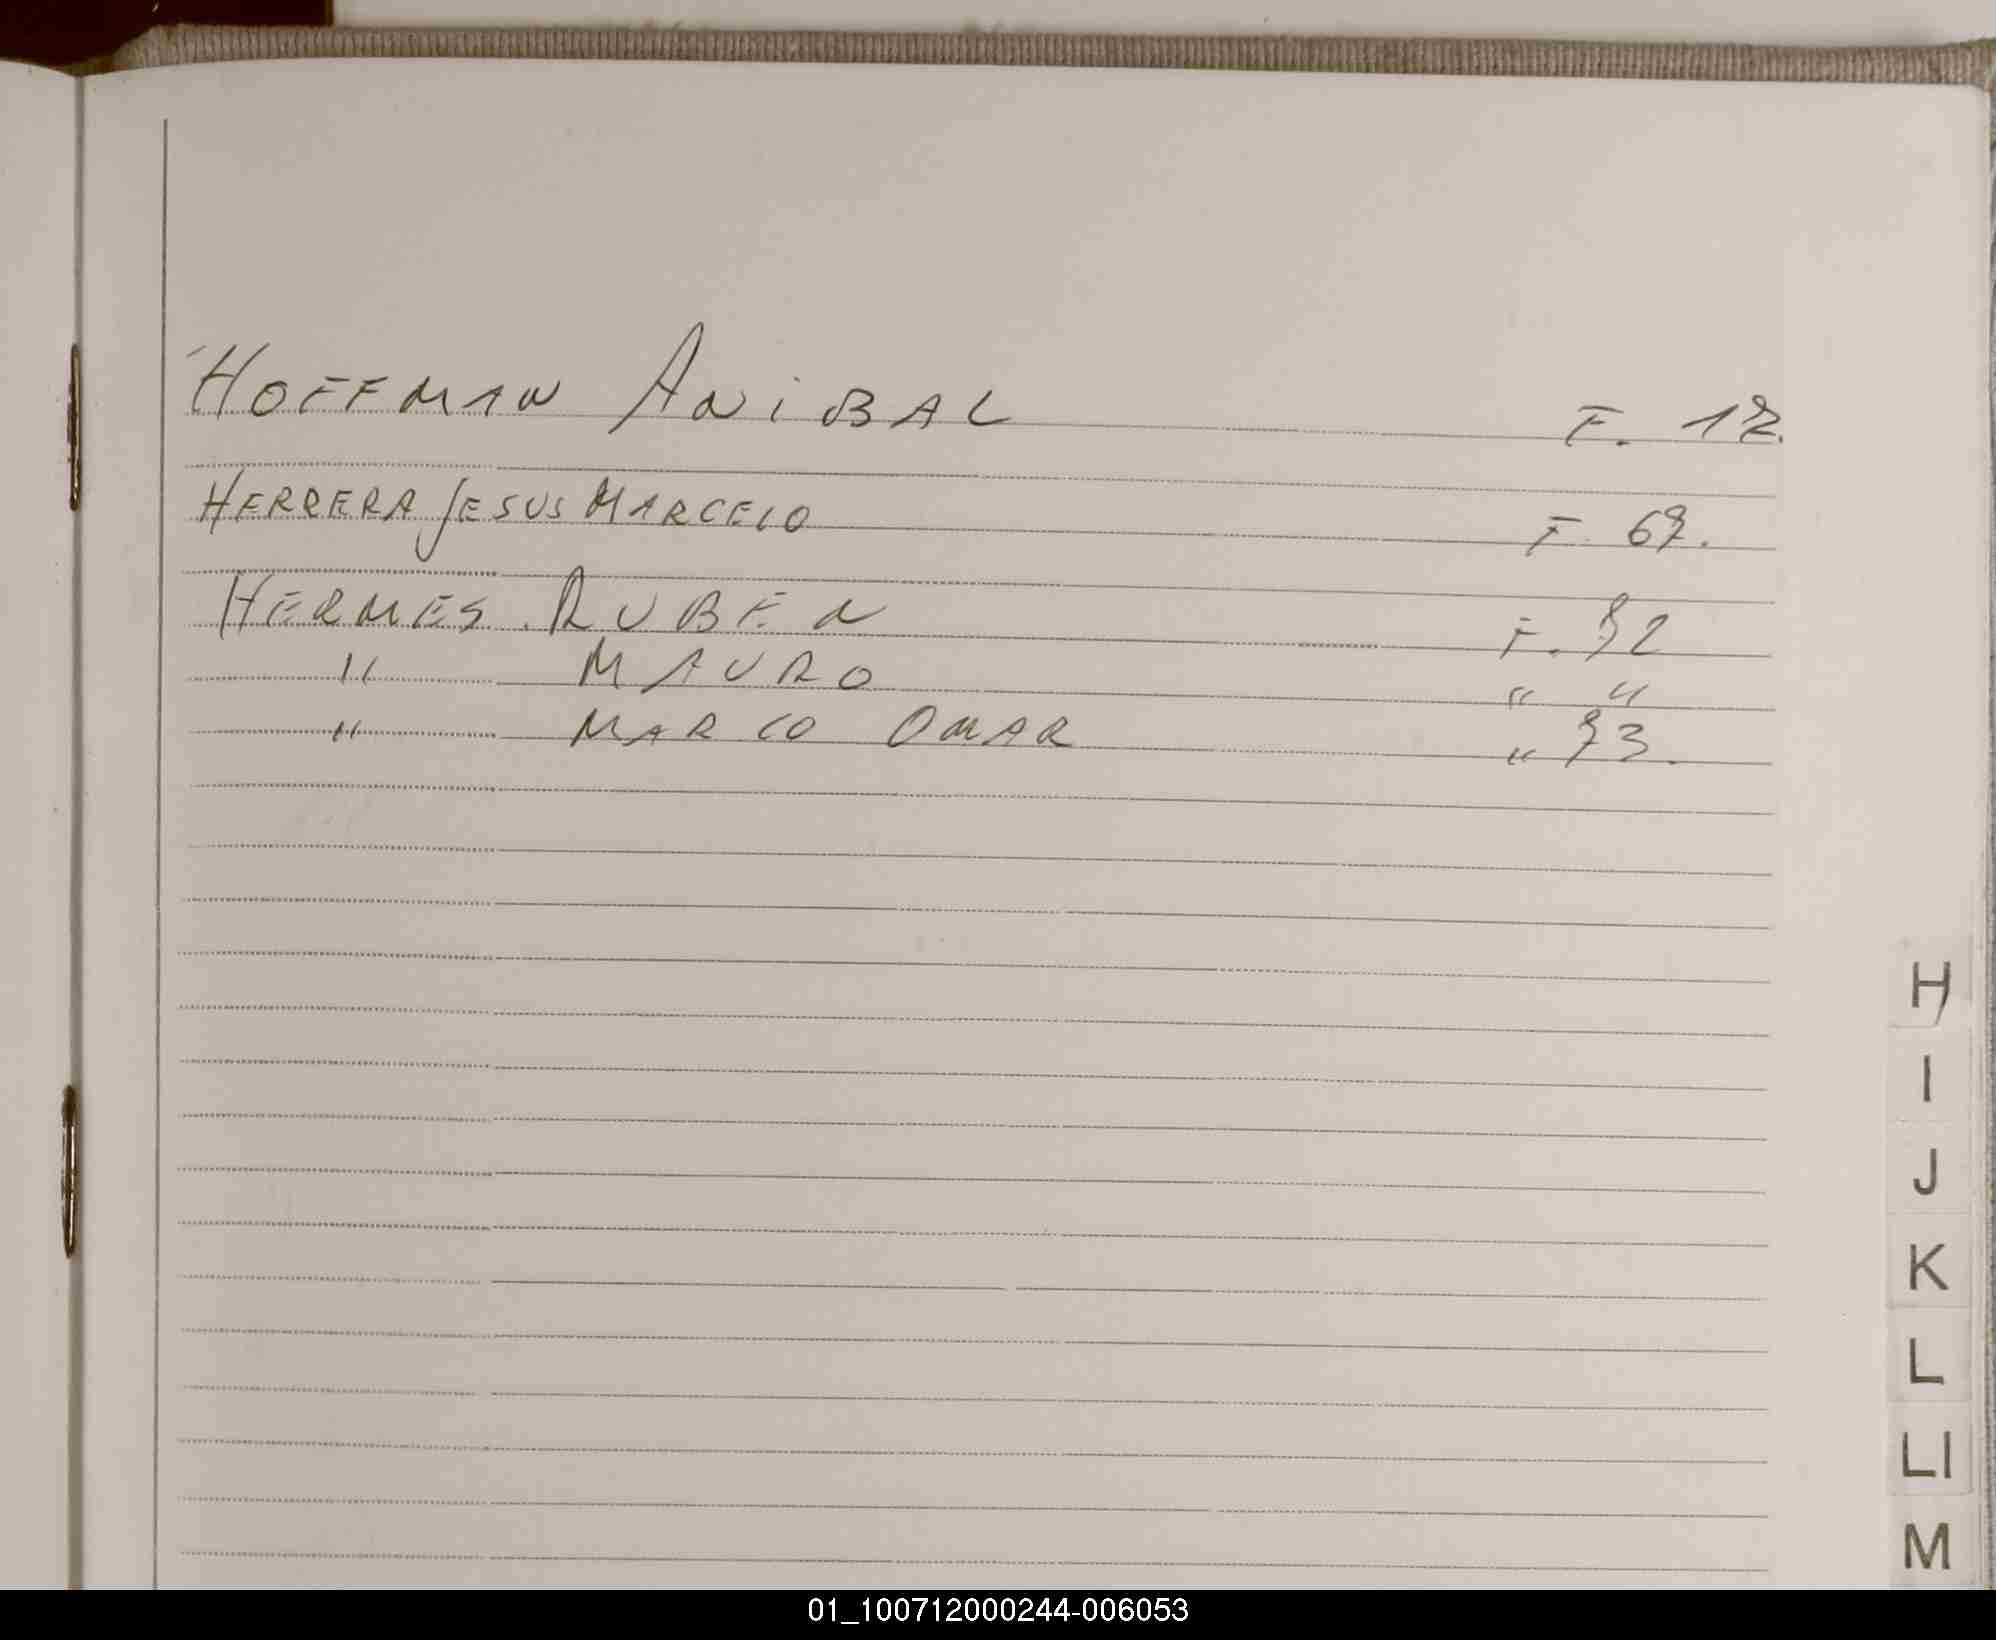 HOFFMAN ANIBAL F. 12.
HERRERA JESUS MARCELO F. 67.
HERMES RUBEN F. 72
" MAURO " "
" MARCO OMAR " 73.
H
I
J
K
L
Ll
M
01_100712000244-006053